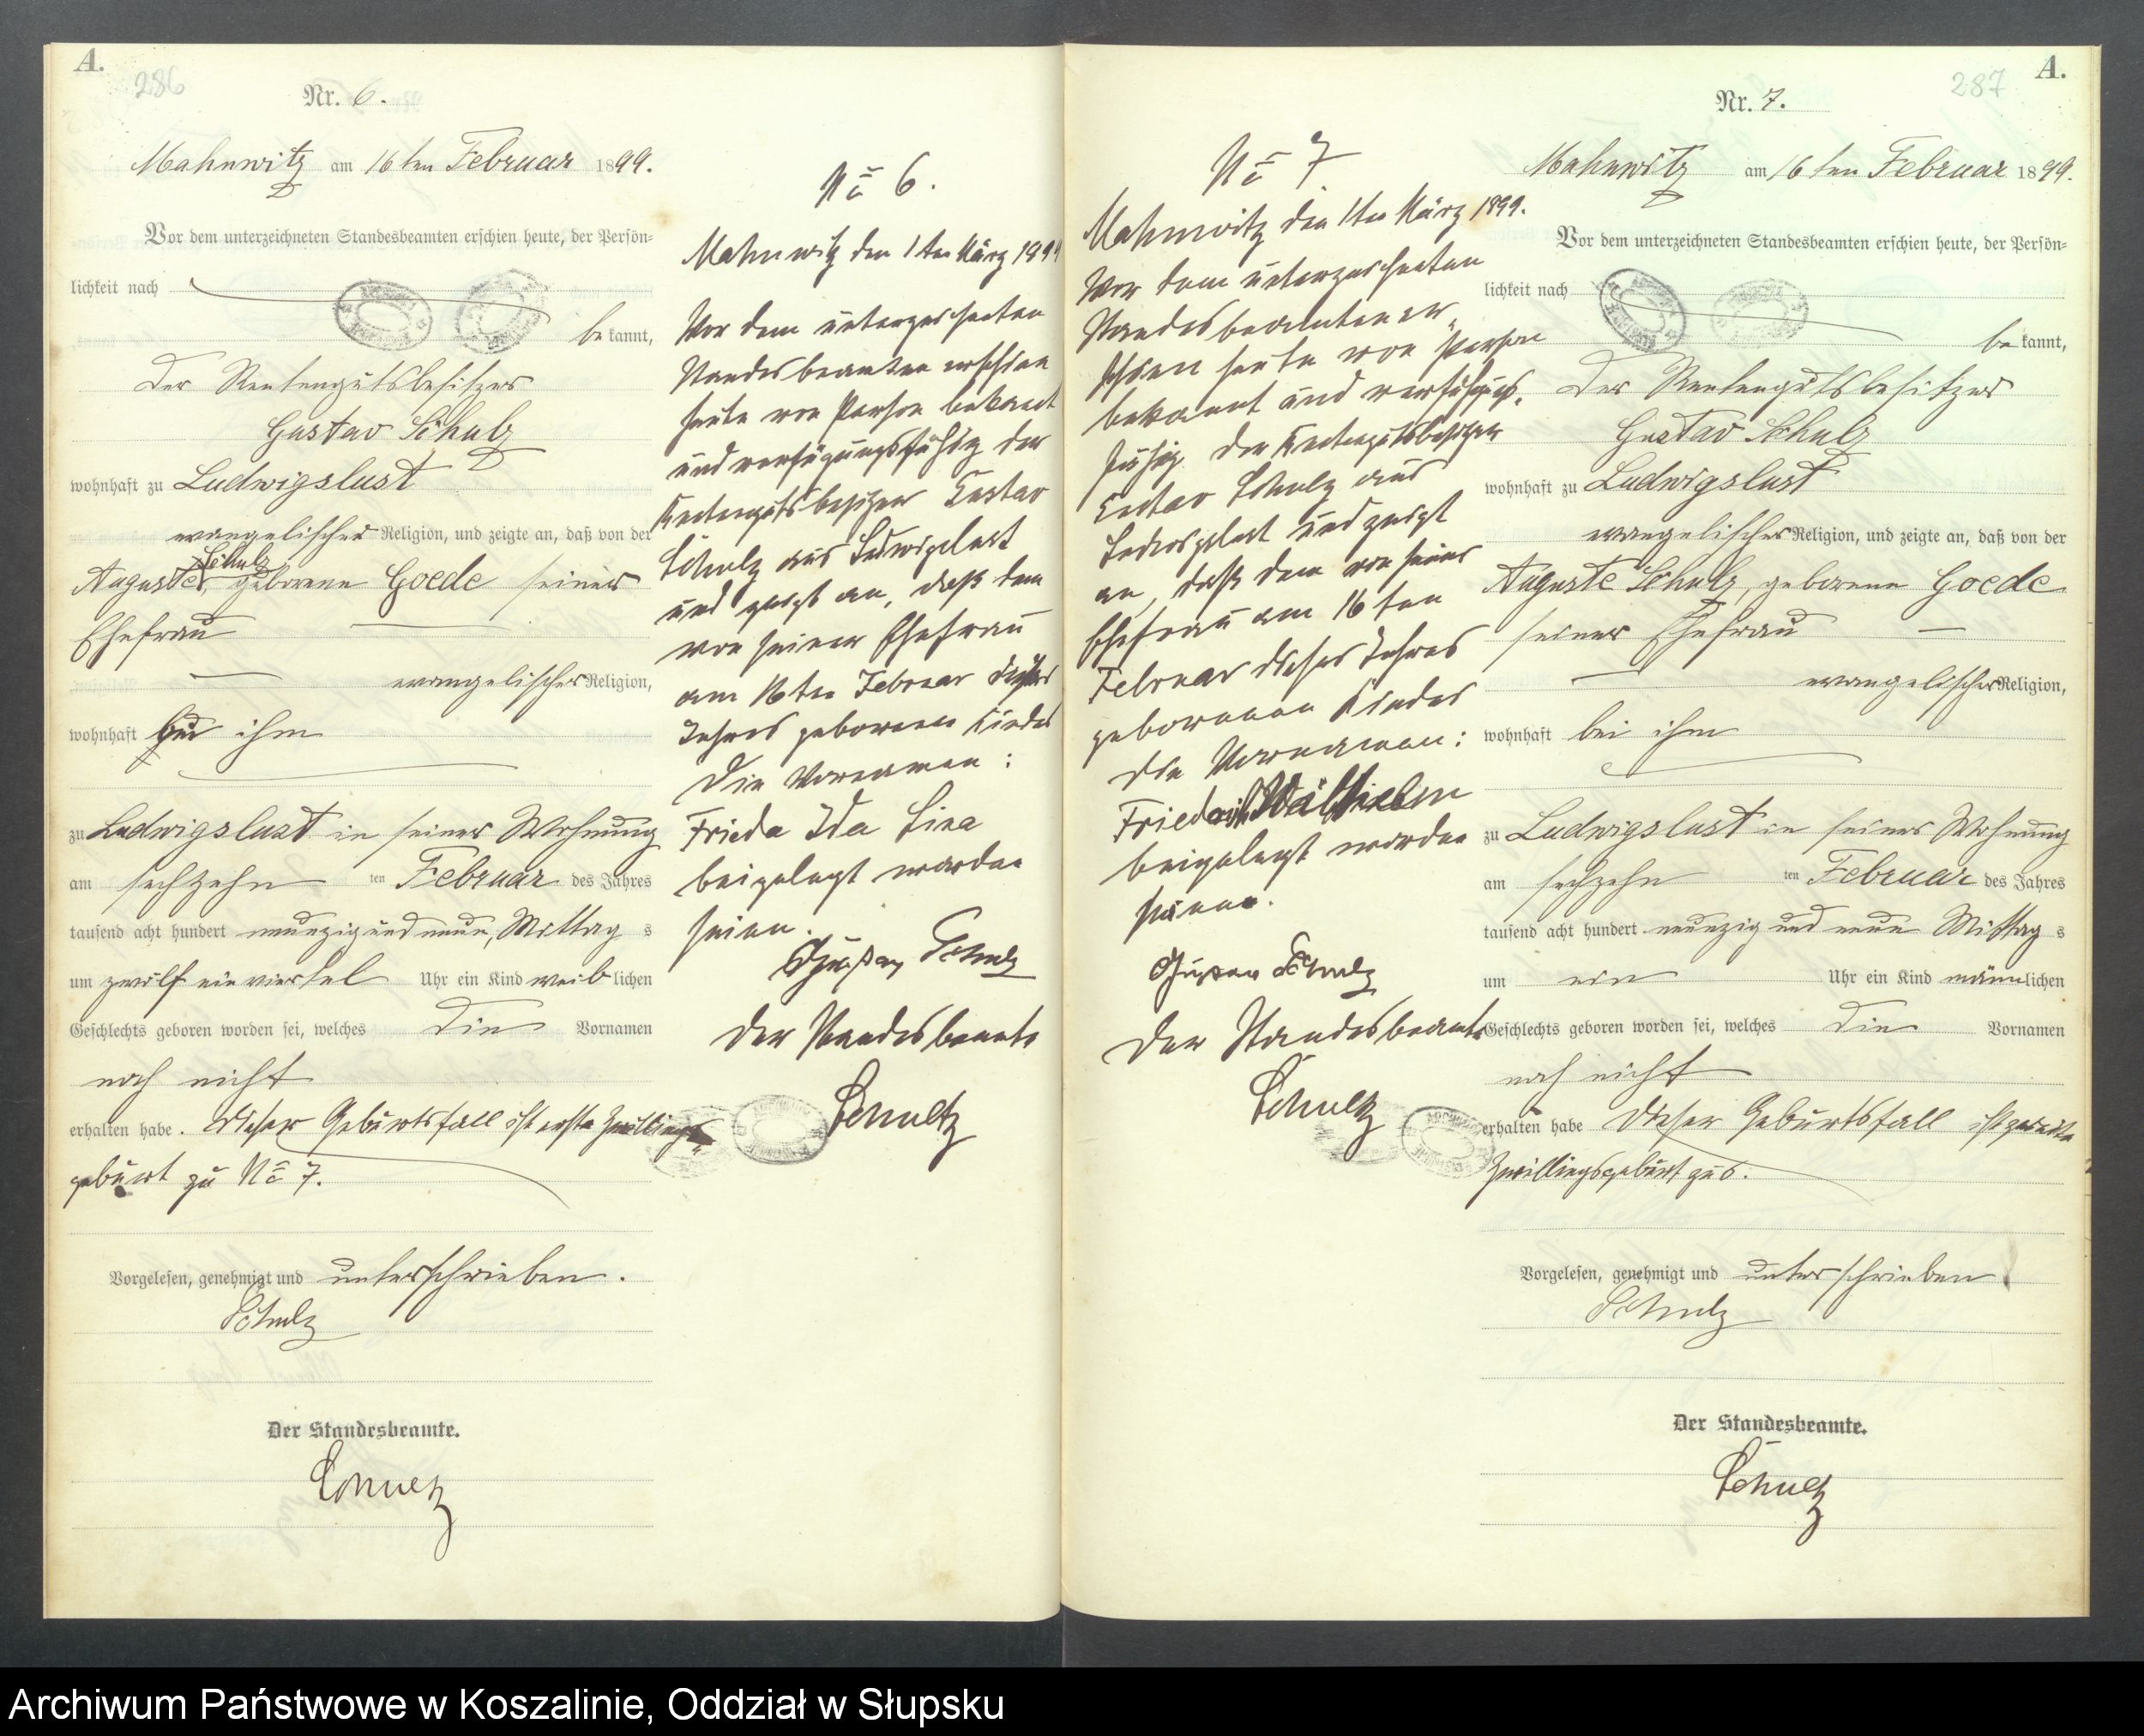 A.
286
Nr. 6.
Mahnwitz am 16ten Februar 1899.
Vor dem unterzeichneten Standesbeamten erschien heute, der Persön-
lichkeit nach
be kannt,
der Rentengutsbesitzer
Gustav Schulz
wohnhaft zu Ludwigslust
evangelischer Religion, und zeigte an, daß von der
Schulz
Auguste, geborene Goede seiner
Ehefrau
evangelischer Religion,
wohnhaft bei ihm
zu Ludwigslust in seiner Wohnung
am sechzehn ten Februar des Jahres
tausend acht hundert neunzig und neun, Mittag s
um zwölf ein viertel Uhr ein Kind weib lichen
Geschlechts geboren worden sei, welches die Vornamen
noch nicht
erhalten habe. Dieser Geburtsfall ist erste Zwillings-
geburt zu No 7.
Vorgelesen, genehmigt und unterschrieben.
Schulz
Der Standesbeamte.
Schultz
No 6.
Mahnwitz den 1ten März 1899
Vor dem unterzeichneten
Standesbeamten erschien
heute von Person bekannt
und verfügungsfähig der
Rentengutsbesitzer Gustav
Schulz aus Ludwigslust
und zeigt an, daß dem
von seiner Ehefrau
am 16ten Februar dieses
Jahres geborenen Kindes
die Vornamen:
Frieda Ida Lina
beigelegt worden
seien.
Gustav Schulz
Der Standesbeamte
Schultz
No 7
Mahnwitz den 1ten März 1899.
Vor dem unterzeichneten
Standesbeamten er-
schien heute von Person
bekannt und verfügungs-
fähig der Rentengutsbesitzer
Gustav Schulz aus
Ludwigslust und zeigt
an, daß dem von seiner
Ehefrau am 16ten
Februar dieses Jahres
geborenen Kindes
die Vornamen:
Friedrich
beigelegt worden
seien.
Gustav Schulz
Der Standesbeamte
Schultz
A.
287
Nr. 7.
Mahnwitz am 16ten Februar 1899.
Vor dem unterzeichneten Standesbeamten erschien heute, der Persön-
lichkeit nach
be kannt,
der Rentengutsbesitzer
Gustav Schulz
wohnhaft zu Ludwigslust
evangelischer Religion, und zeigte an, daß von der
Auguste Schulz, geborene Goede
seiner Ehefrau
evangelischer Religion,
wohnhaft bei ihm
zu Ludwigslust in seiner Wohnung
am sechzehn ten Februar des Jahres
tausend acht hundert neunzig und neun Mittag s
um ein Uhr ein Kind männlichen
Geschlechts geboren worden sei, welches die Vornamen
noch nicht
erhalten habe Dieser Geburtsfall ist zweite
Zwillingsgeburt zu 6.
Vorgelesen, genehmigt und unterschrieben
Schulz
Der Standesbeamte.
Schultz
Archiwum Państwowe w Koszalinie, Oddział w Słupsku